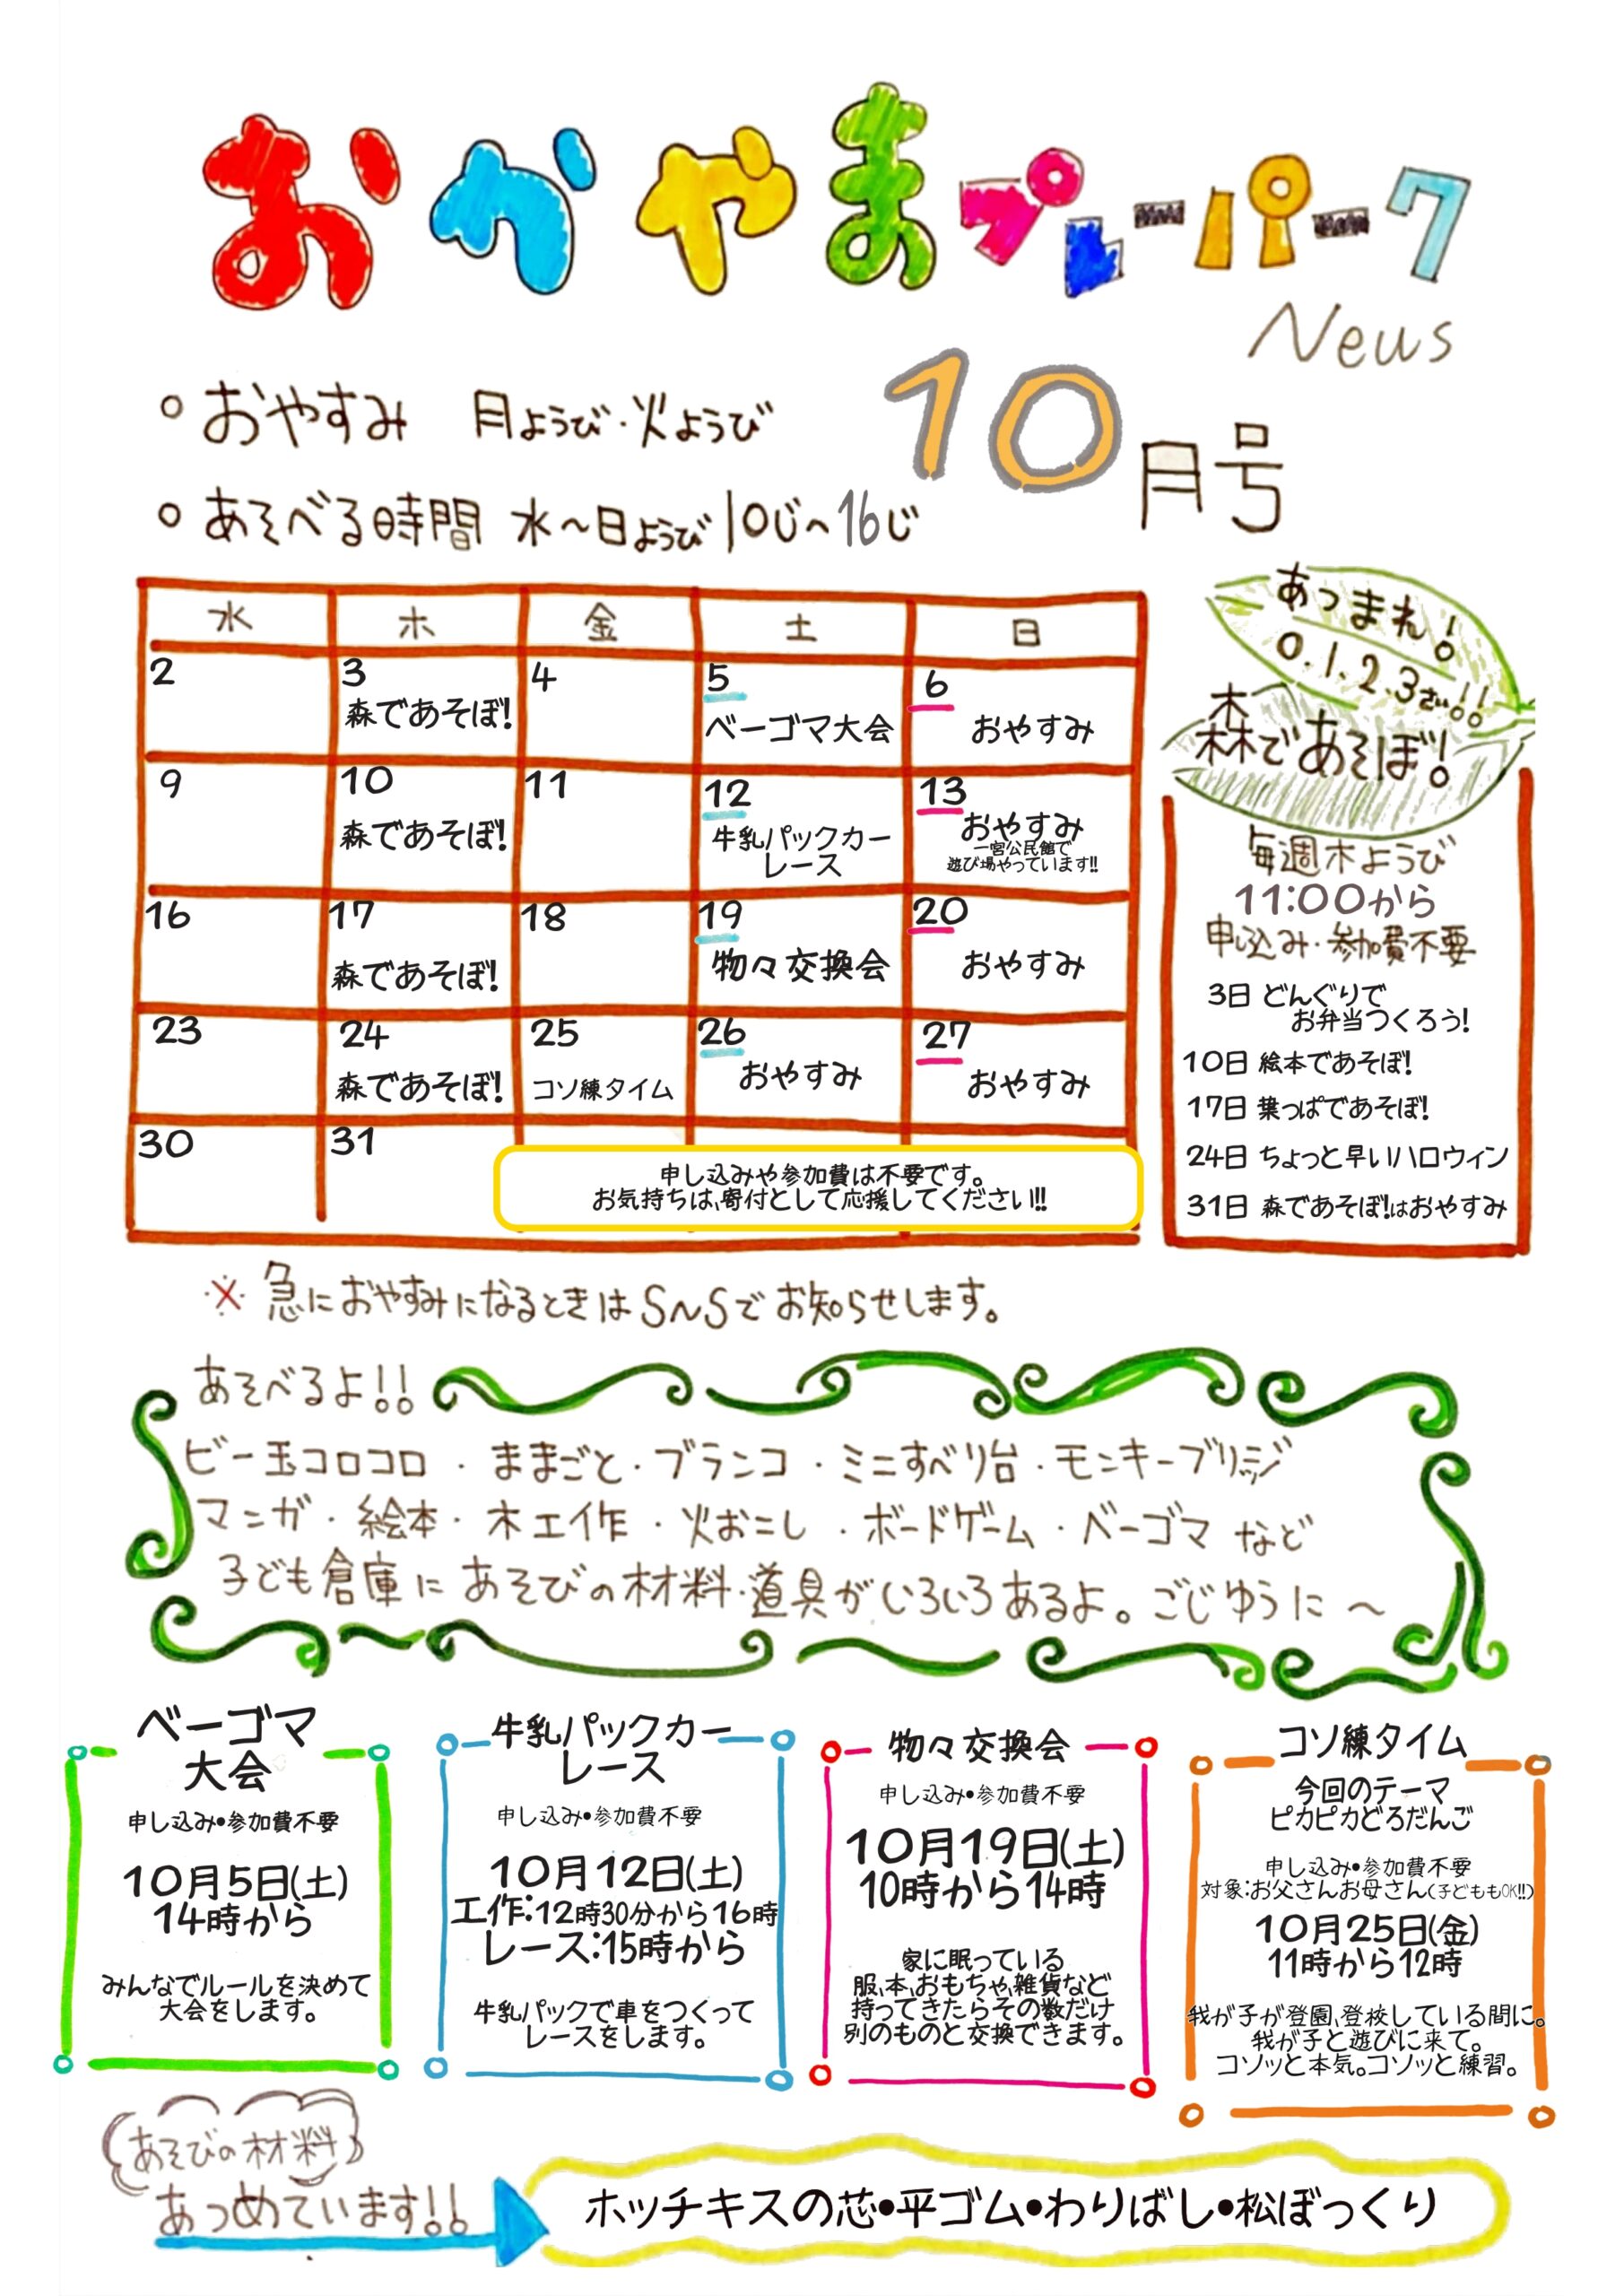 おかやまプレーパーク
News
10月号
○おやすみ 月ようび・火ようび
○あそべる時間 水～日ようび 10じ～16じ
水 木 金 土 日
2
3 森であそぼ!
4
5 ベーゴマ大会
6 おやすみ
9
10 森であそぼ!
11
12 牛乳パックカー
レース
13 おやすみ
一宮公民館で
遊び場やっています!!
16
17 森であそぼ!
18
19 物々交換会
20 おやすみ
23
24 森であそぼ!
25 コソ練タイム
26 おやすみ
27 おやすみ
30
31
申し込みや参加費は不要です。
お気持ちは、寄付として応援してください!!
あつまれ!
0.1.2.3さい!!
森であそぼ!
毎週木ようび
11:00から
申し込み・参加費不要
3日 どんぐりで
お弁当つくろう!
10日 絵本であそぼ!
17日 葉っぱであそぼ!
24日 ちょっと早いハロウィン
31日 森であそぼ!はおやすみ
※ 急におやすみになるときはSNSでお知らせします。
あそべるよ!!
ビー玉コロコロ・ままごと・ブランコ・ミニすべり台・モンキーブリッジ
マンガ・絵本・木工作・火おこし・ボードゲーム・ベーゴマ など
子ども倉庫にあそびの材料・道具がいろいろあるよ。ごじゆうに～
ベーゴマ
大会
申し込み•参加費不要
10月5日(土)
14時から
みんなでルールを決めて
大会をします。
牛乳パックカー
レース
申し込み•参加費不要
10月12日(土)
工作:12時30分から16時
レース:15時から
牛乳パックで車をつくって
レースをします。
物々交換会
申し込み•参加費不要
10月19日(土)
10時から14時
家に眠っている
服、本、おもちゃ、雑貨など
持ってきたらその数だけ
別のものと交換できます。
コソ練タイム
今回のテーマ
ピカピカどろだんご
申し込み•参加費不要
対象:お父さんお母さん(子どももOK!!)
10月25日(金)
11時から12時
我が子が登園、登校している間に。
我が子と遊びに来て。
コソッと本気。コソッと練習。
あそびの材料
あつめています!!
ホッチキスの芯•平ゴム•わりばし•松ぼっくり